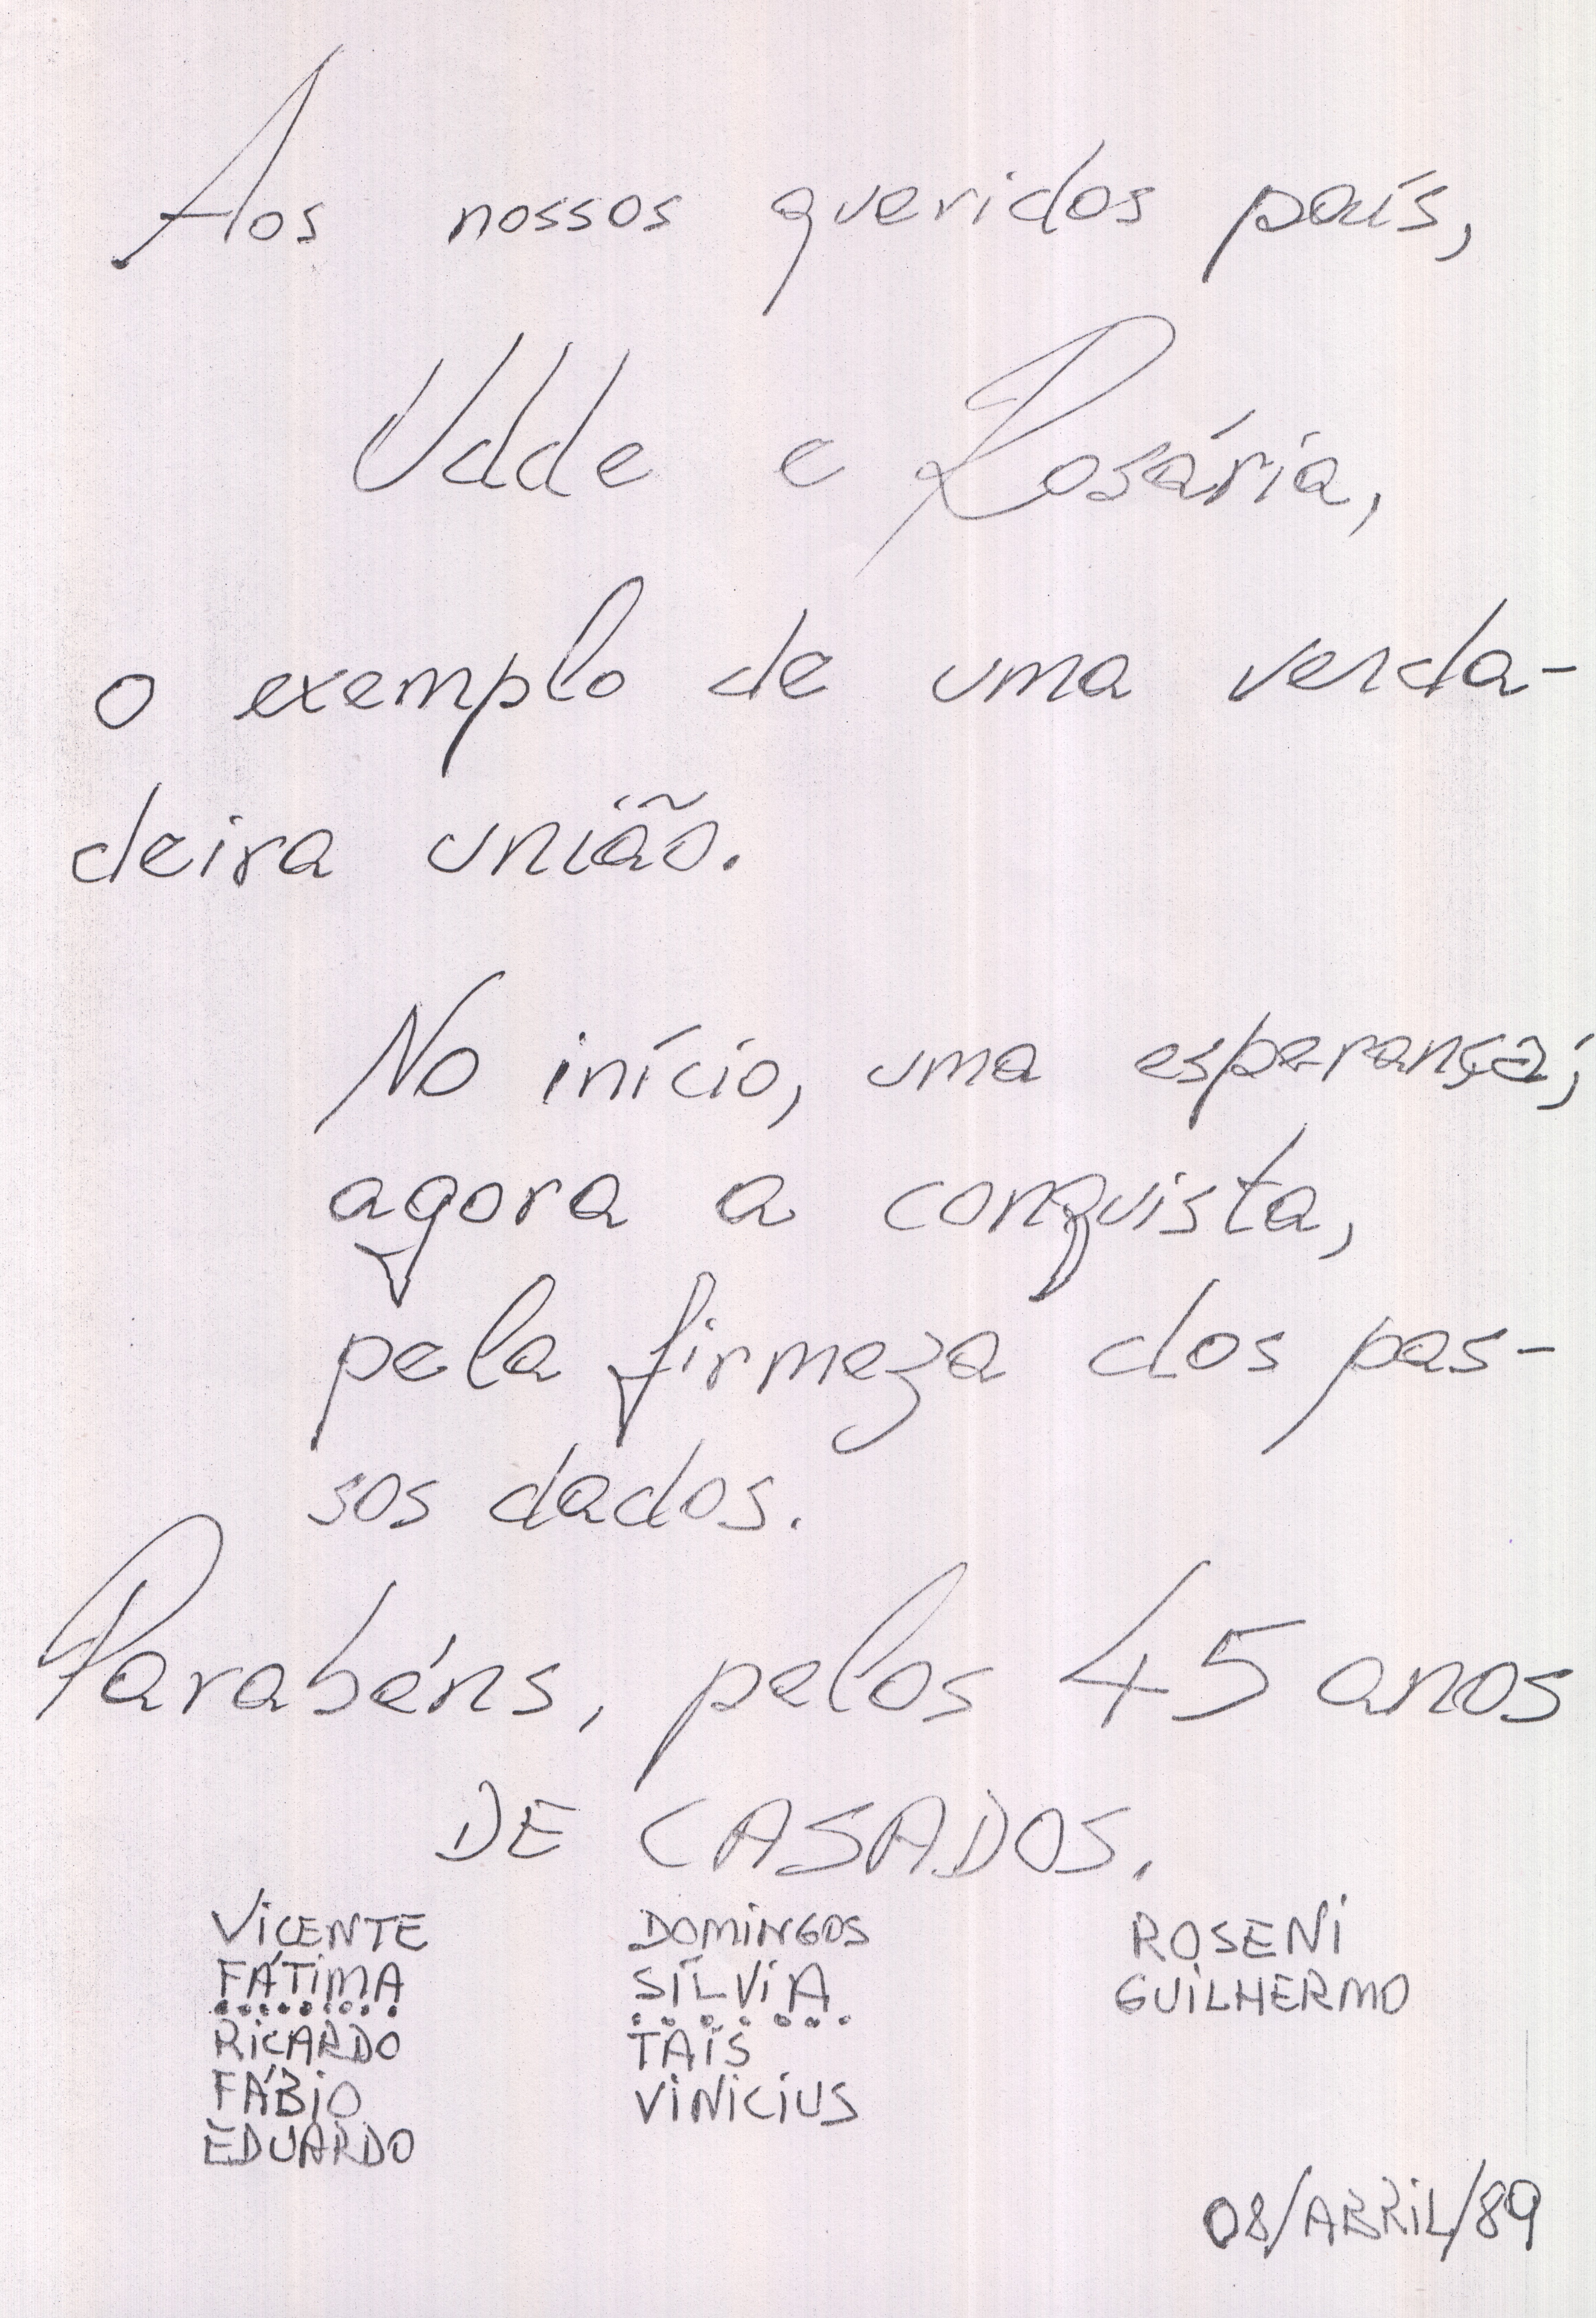 Aos nossos queridos pais,
Udde e Rosária,
o exemplo de uma verda-
deira união.
No início, uma esperança;
agora a conquista,
pela firmeza dos pas-
sos dados.
Parabéns, pelos 45 anos
DE CASADOS.
VICENTE DOMINGOS ROSENI
FÁTIMA SÍLVIA GUILHERMO
RICARDO TAÍS
FÁBIO VINICIUS
EDUARDO
08/ABRIL/89